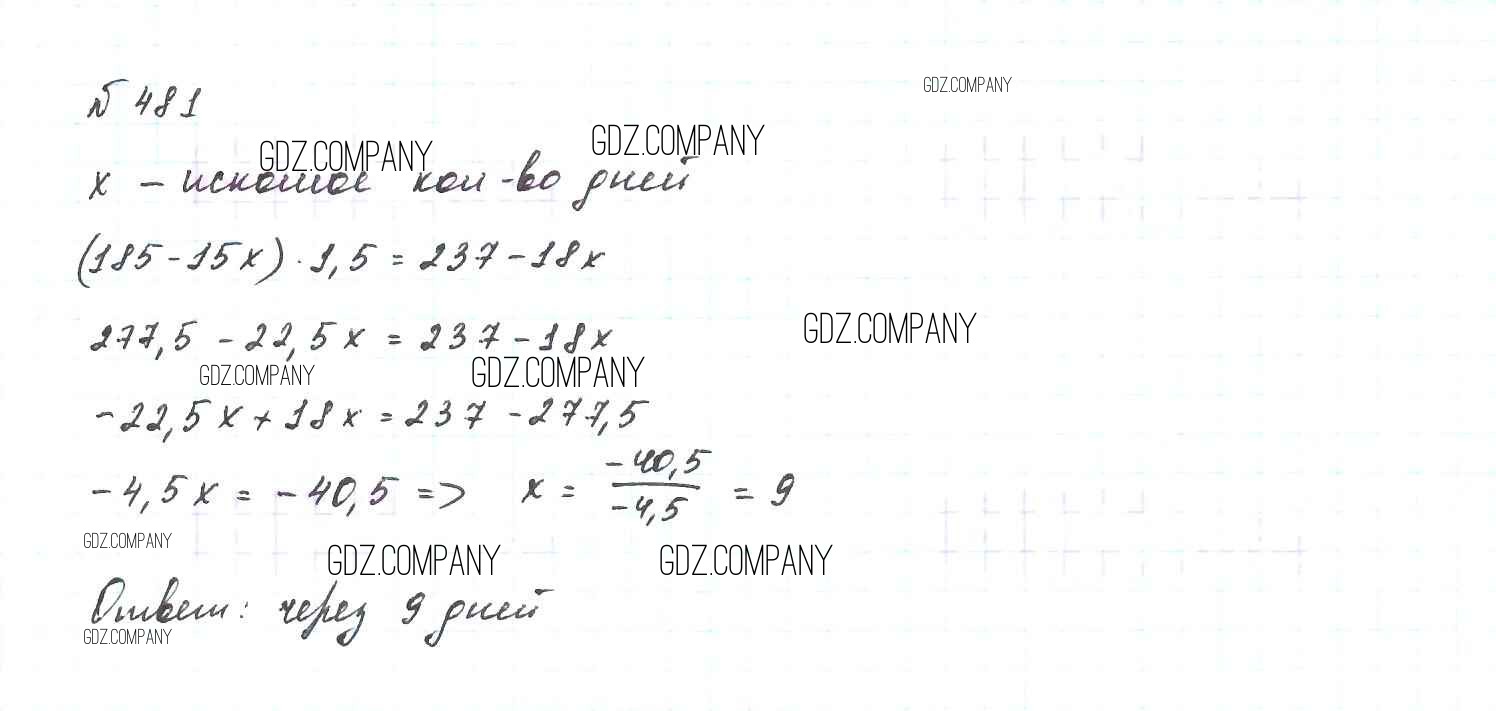 № 481
GDZ.COMPANY
GDZ.COMPANY
GDZ.COMPANY
x - искомое кол-во дней
(185-15x)·1,5 = 237-18x
277,5 - 22,5x = 237-18x
GDZ.COMPANY
GDZ.COMPANY
GDZ.COMPANY
-22,5x+18x = 237 -277,5
-4,5x = -40,5 => x = -40,5/-4,5 = 9
GDZ.COMPANY
GDZ.COMPANY
GDZ.COMPANY
Ответ: через 9 дней
GDZ.COMPANY